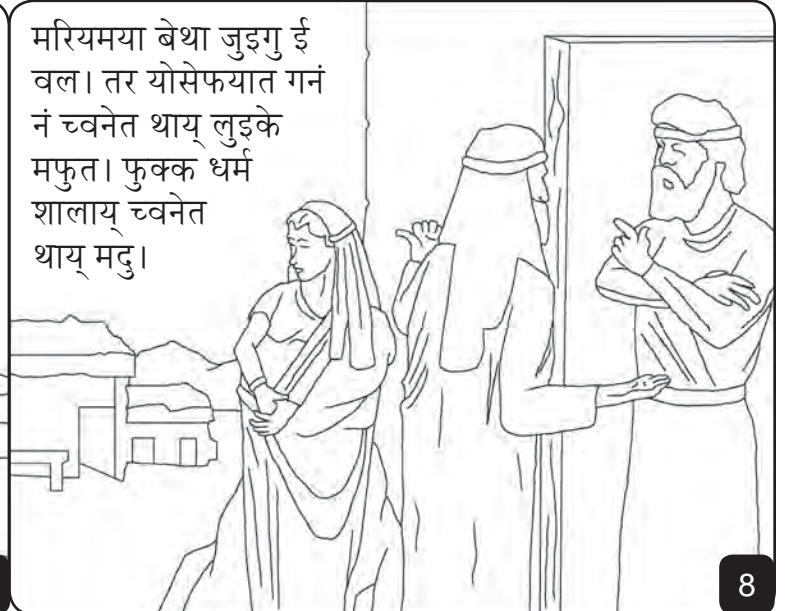 मरियमया बेथा जुइगु ई
वल। तर योसेफयात गनं
नं च्वनेत थाय् लुइके
मफुत। फुक्क धर्म
शालाय् च्वनेत
थाय् मदु।
8